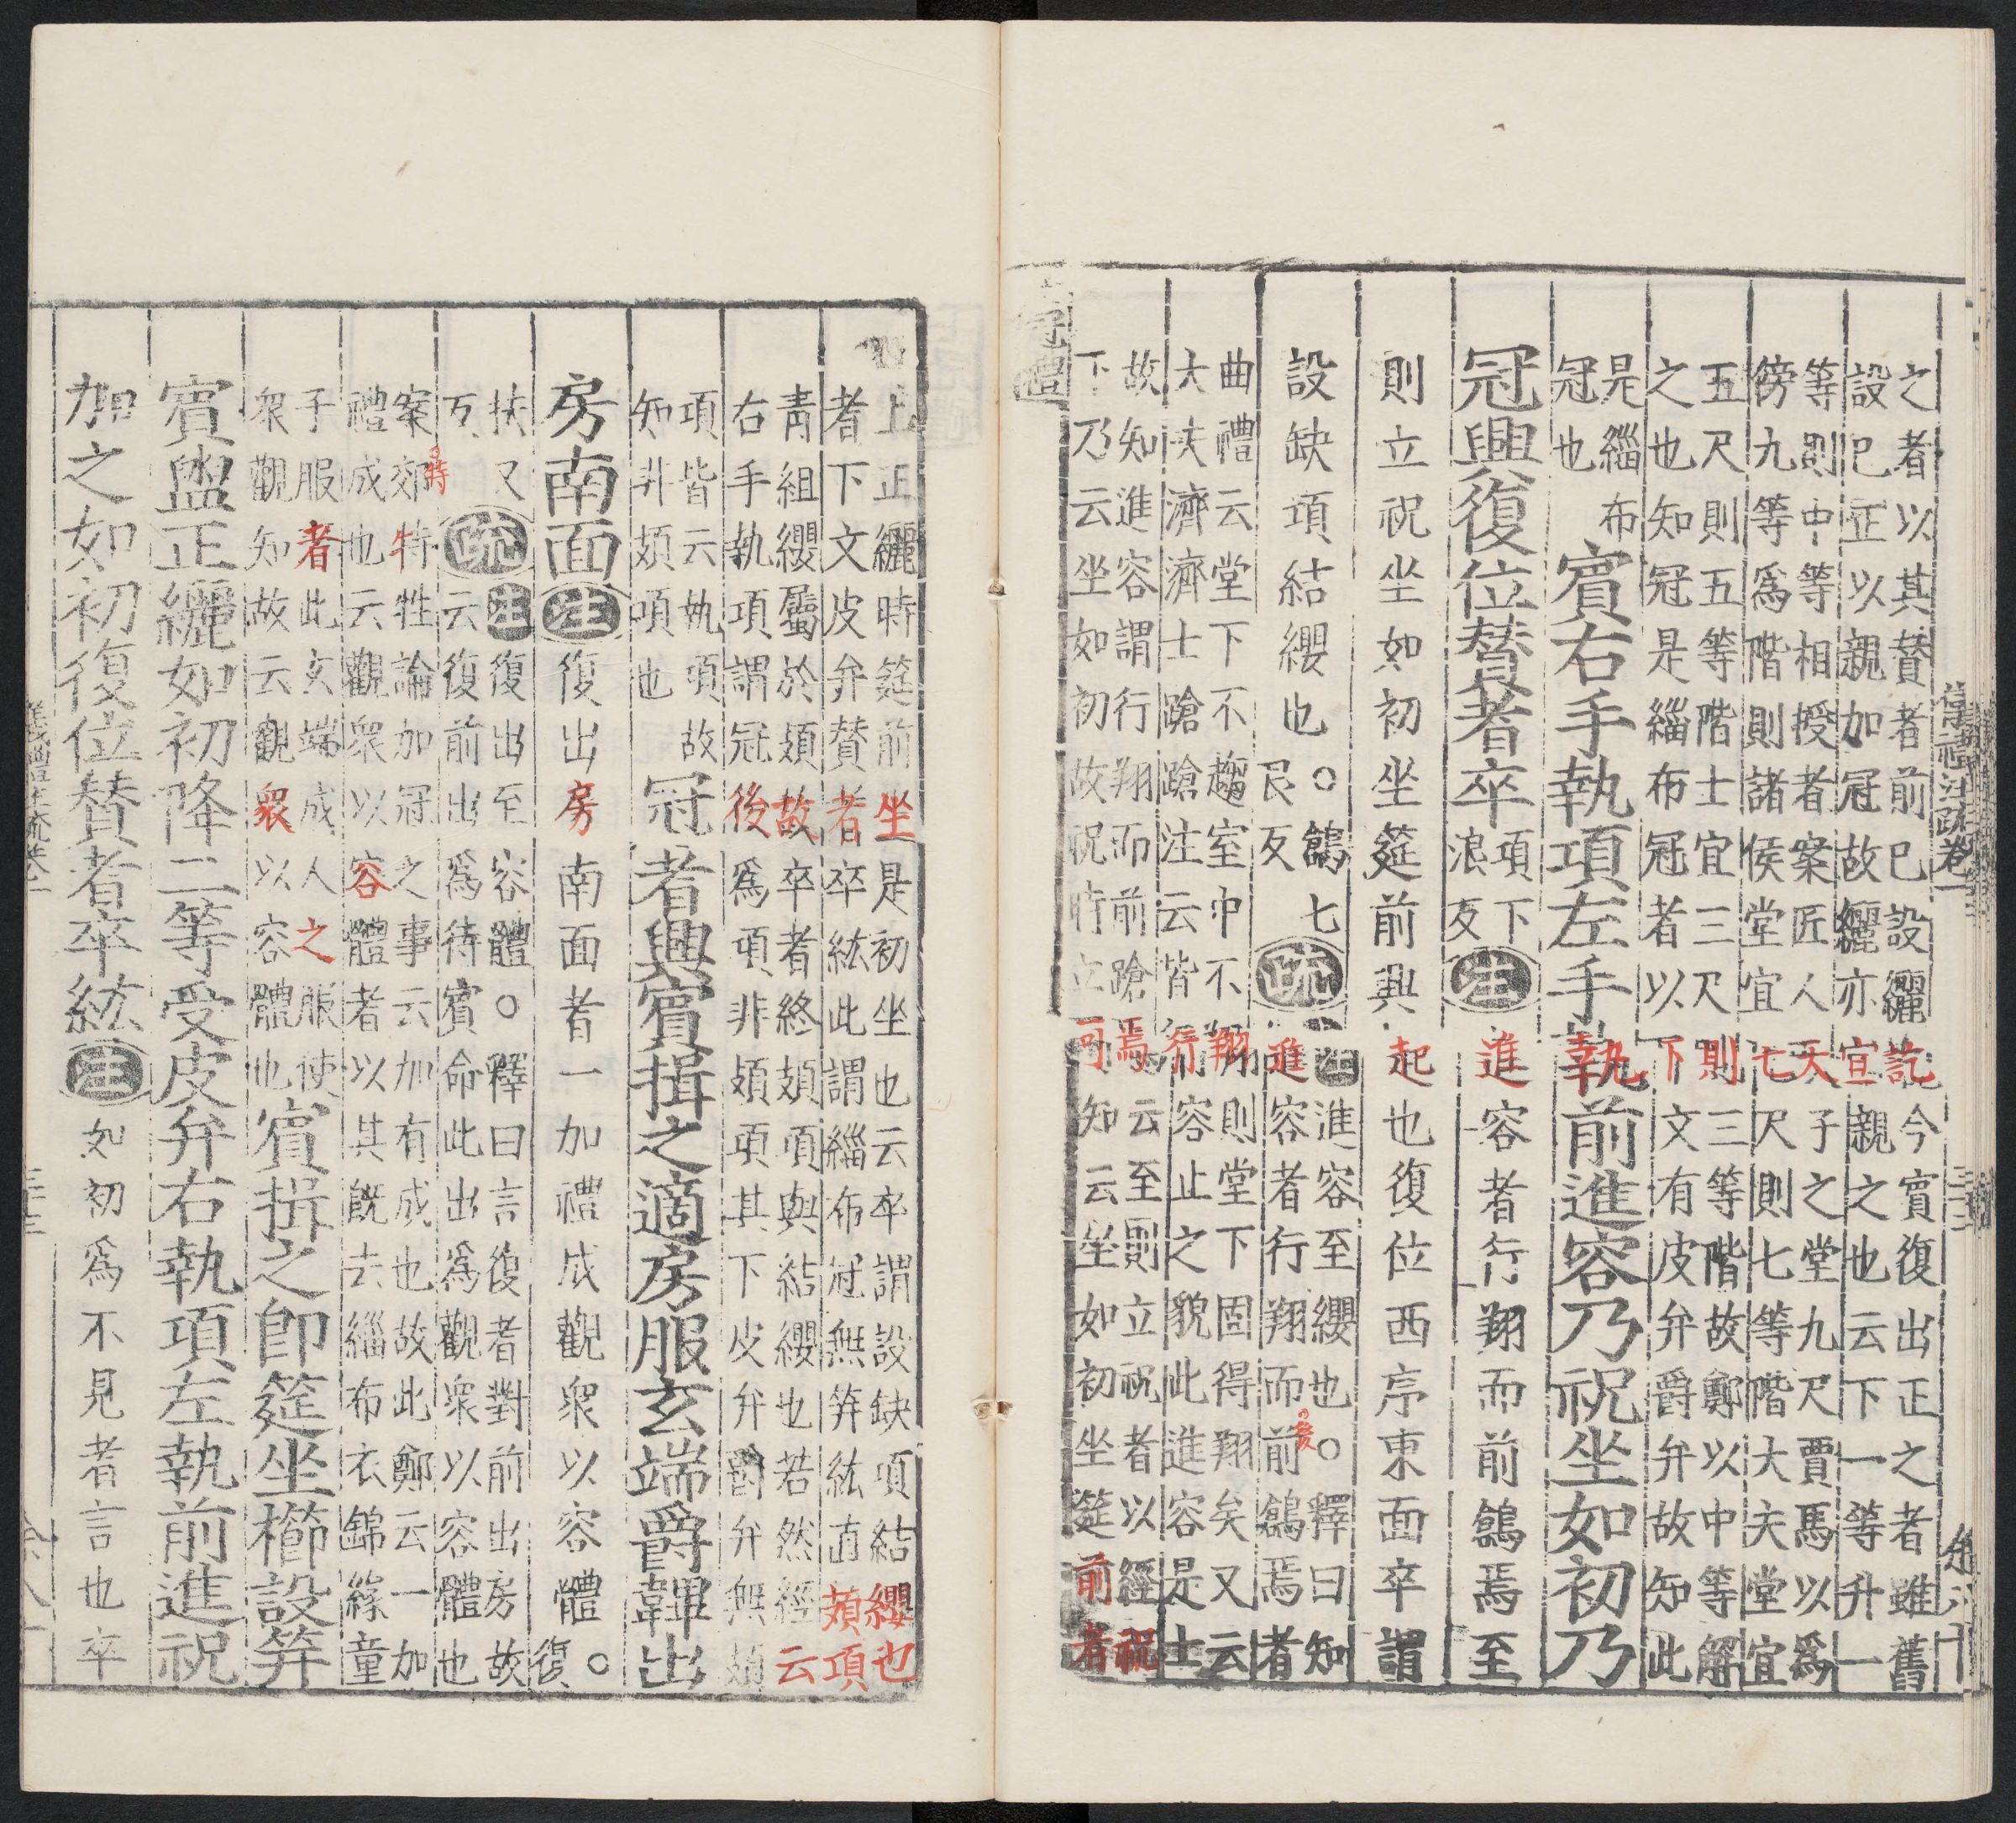 儀禮注疏卷一
之者以其賛者前已設纚訖今賔復出正之者雖舊
設已正以親加冠故纚亦宜親之也云下一等升一
等則中等相授者案匠人天子之堂九尺賈馬以爲
傍九等爲階則諸侯堂宜七尺則七等階大夫堂宜
五尺則五等階士宜三尺則三等階故鄭以中等解
之也知冠是緇布冠者以下文有皮弁爵弁故知此
是緇布
冠也
賔右手執項左手執前進容乃祝坐如初乃
冠興復位賛者卒 項下浪反 注 進容者行翔而前鶬焉至
則立祝坐如初坐筵前興起也復位西序東面卒謂
設缺項結纓也○鶬七艮反 疏
注進容至纓也○釋曰知
進容者行翔而前鶬焉者
曲禮云堂下不趨室中不翔則堂下固得翔矣又云
大夫濟濟士蹌蹌注云皆行容止之貌此進容是士
故知進容謂行翔而前蹌焉云至則立祝者以經祝
下乃云坐如初故祝時立可知云坐如初坐筵前者
上正纚時筵前坐是初坐也云卒謂設缺項結纓也
者下文皮弁賛者卒紘此謂緇布冠無笄紘直頍項
青組纓屬於頍故卒者終頍項與結纓也若然經云
右手執項謂冠後爲項非頍項其下皮弁爵弁無頍
項皆云執項故
知非頍項也
冠者興賔揖之適房服玄端爵韠出
房南面 注 復出房南面者一加禮成觀衆以容體○復
扶又反 疏
注復出至容體○釋曰言復者對前出房故
云復前出爲待賔命此出爲觀衆以容體也
案郊特牲論加冠之事云加有成也故此鄭云一加
禮成也云觀衆以容體者以其旣去緇布衣錦緣童
子服者此玄端成人之服使
衆觀知故云觀衆以容體也
賔揖之即筵坐櫛設笄
賔盥正纚如初降二等受皮弁右執項左執前進祝
加之如初復位賛者卒紘 注 如初爲不見者言也卒